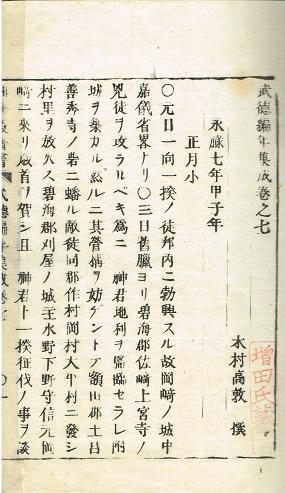 武德編年集成卷之七
木村高敦 撰
增田氏藏
永祿七年甲子年
正月小
〇元日一向一揆ノ徒邦内ニ勃興スル故岡崎ノ城中
嘉儀省畧ナリ〇三日舊臘ヨリ碧海郡佐崎上宮寺ノ
兇徒ヲ攻ラルベキ爲ニ 神君地利ヲ監臨セラレ附
城ヲ築カル然ルニ其營構ヲ妨ゲントテ額田郡土呂
善秀寺ノ岩ニ蟠ル敵徒同郡作村岡村大平村ニ發シ
村里ヲ放火ス碧海郡刈屋ノ城主水野下野守信元岡
崎ニ來リ歳首ヲ賀シ且 神君ト一揆征伐ノ事ヲ談